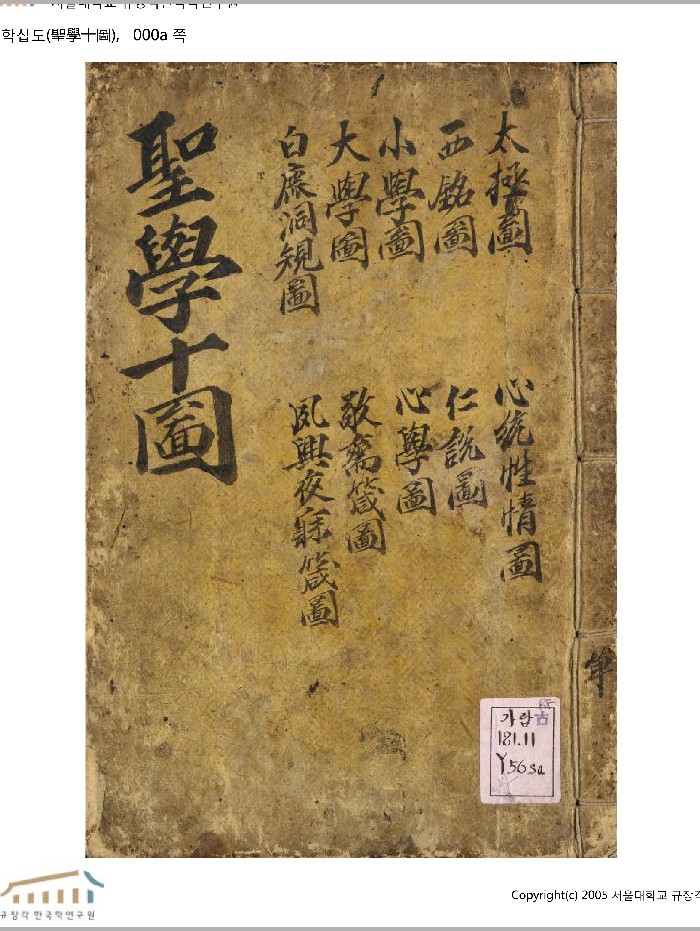 학십도(聖學十圖), 000a 쪽
太極圖
西銘圖
小學圖
大學圖
白鹿洞規圖
心統性情圖
仁說圖
心學圖
敬齋箴圖
夙興夜寐箴圖
聖學十圖
가람 古
181.11
Y56sa
규장각 한국학연구원
Copyright(c) 2005 서울대학교 규장각